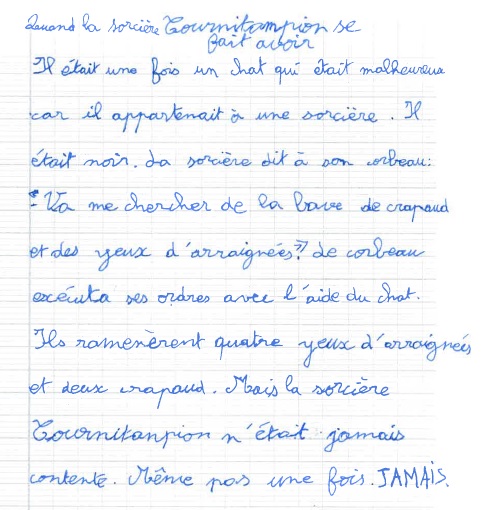 Quand la sorcière Tournitampion se
fait avoir
Il était une fois un chat qui était malheureux
car il appartenait à une sorcière. Il
était noir. La sorcière dit à son corbeau:
"Va me chercher de la bave de crapaud
et des yeux d'arraignées." Le corbeau
exécuta ses ordres avec l'aide du chat.
Ils ramenèrent quatre yeux d'arraignées
et deux crapaud. Mais la sorcière
Tournitanpion n'était jamais
contente. Même pas une fois. JAMAIS.